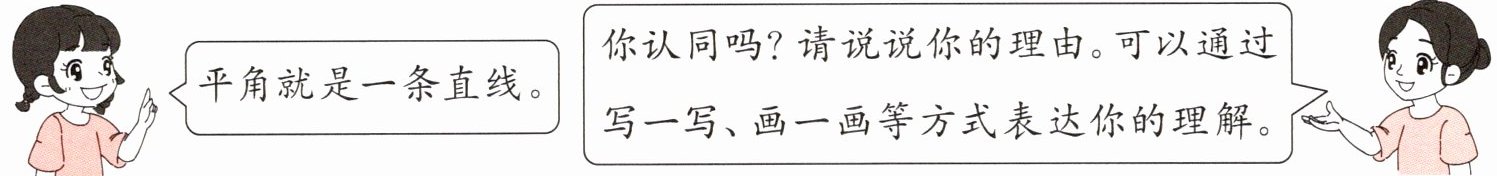 平角就是一条直线。
你认同吗？请说说你的理由。可以通过
写一写、画一画等方式表达你的理解。